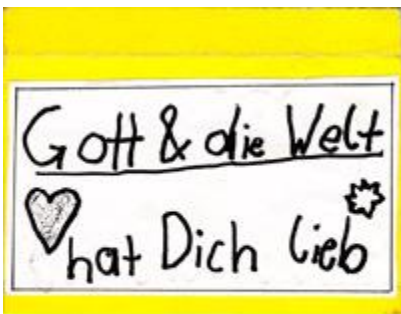 Gott & die Welt
hat Dich lieb